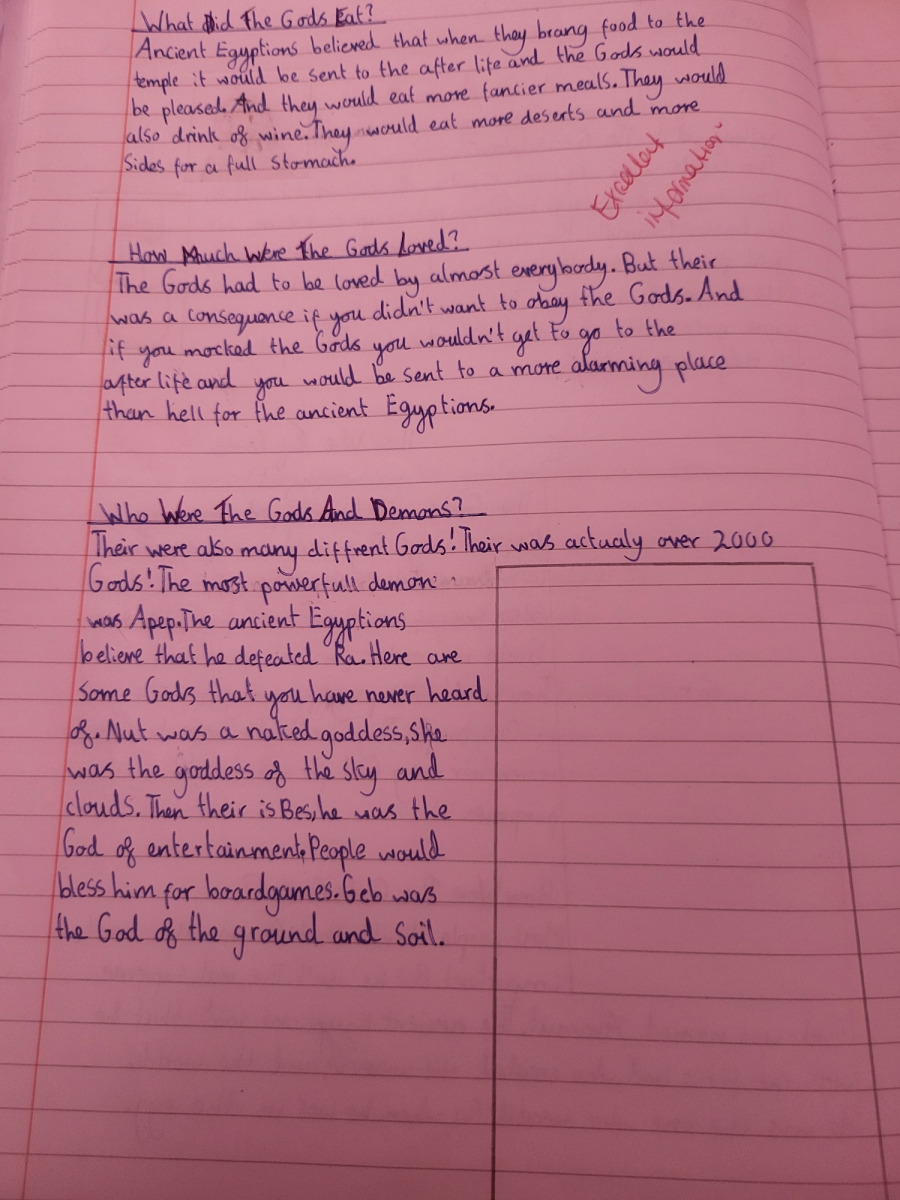 What Did The Gods Eat?
Ancient Egyptions believed that when they brang food to the
temple it would be sent to the after life and the Gods would
be pleased. And they would eat more fancier meals. They would
also drink of wine. They would eat more deserts and more
Sides for a full stomach.
Excellent
information
How Much Were The Gods Loved?
The Gods had to be loved by almost everybody. But their
was a consequence if you didn't want to obey the Gods. And
if you mocked the Gods you wouldn't get to go to the
after life and you would be sent to a more alarming place
than hell for the ancient Egyptions.
Who Were The Gods And Demons?
Their were also many diffrent Gods! Their was actualy over 2000
Gods! The most powerfull demon
was Apep. The ancient Egyptions
believe that he defeated Ra. Here are
some Gods that you have never heard
of. Nut was a naked goddess, She
was the goddess of the sky and
clouds. Then their is Bes, he was the
God of entertainment. People would
bless him for boardgames. Geb was
the God of the ground and Soil.